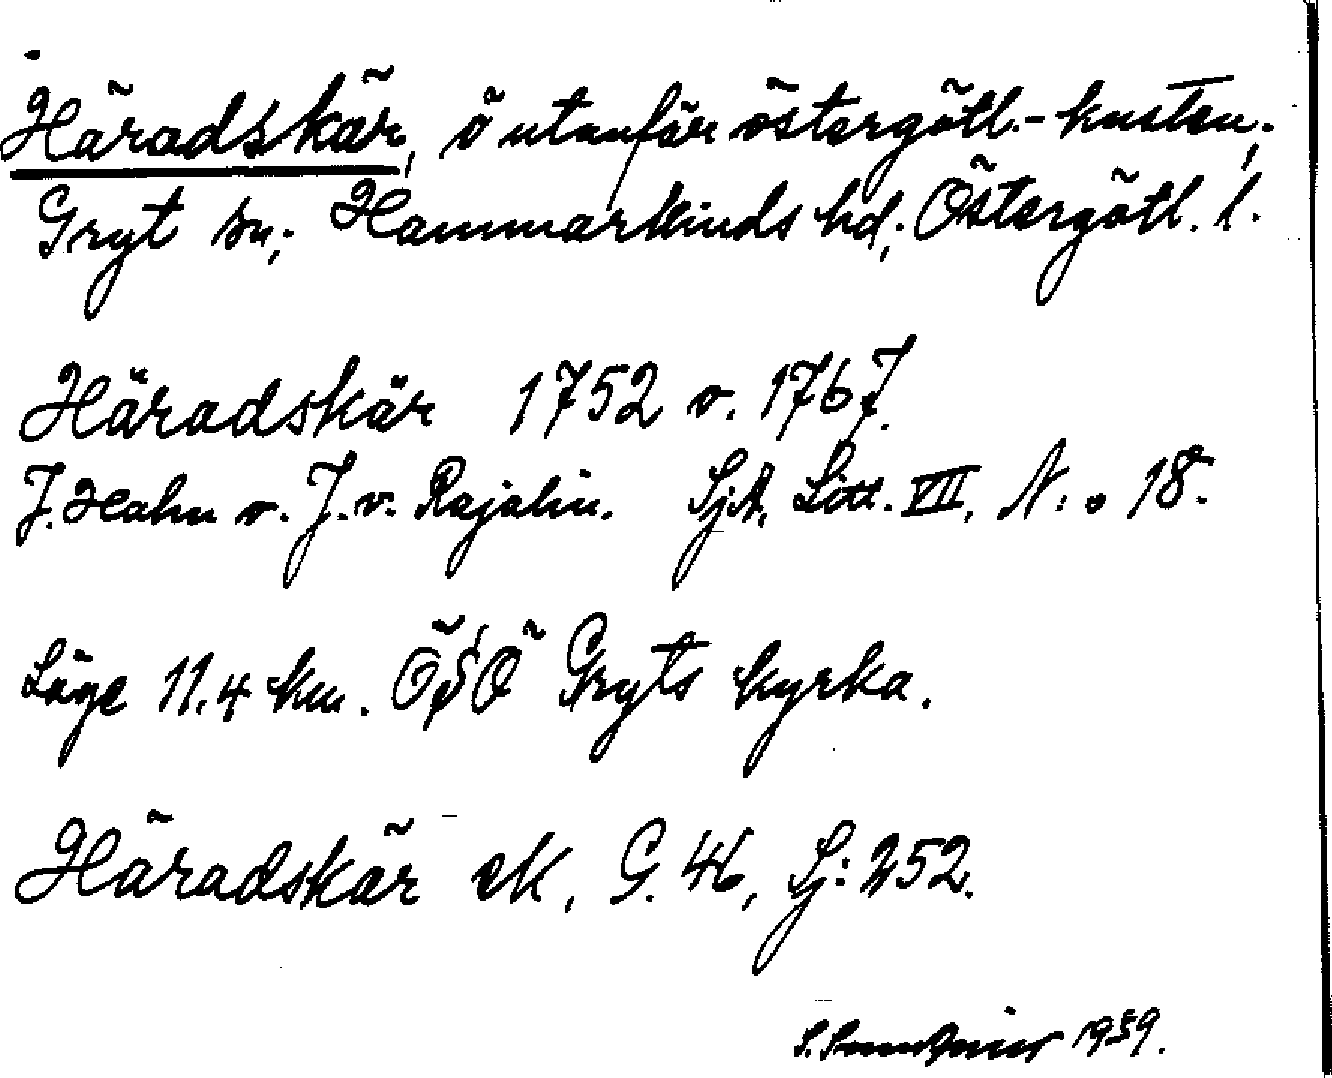 Häradskär, ö utanför östergötl.-kusten;
Gryt sn; Hammarkinds hd; Östergötl. l.
Häradskär 1752 o. 1767.
J. Hahn o. J. v. Rajalin. SjA, Litt. VII, N:o 18.
Läge 11.4 km. ÖSÖ Gryts kyrka.
Häradskär eK, G. 46, Sj: 252.
S. 1959.